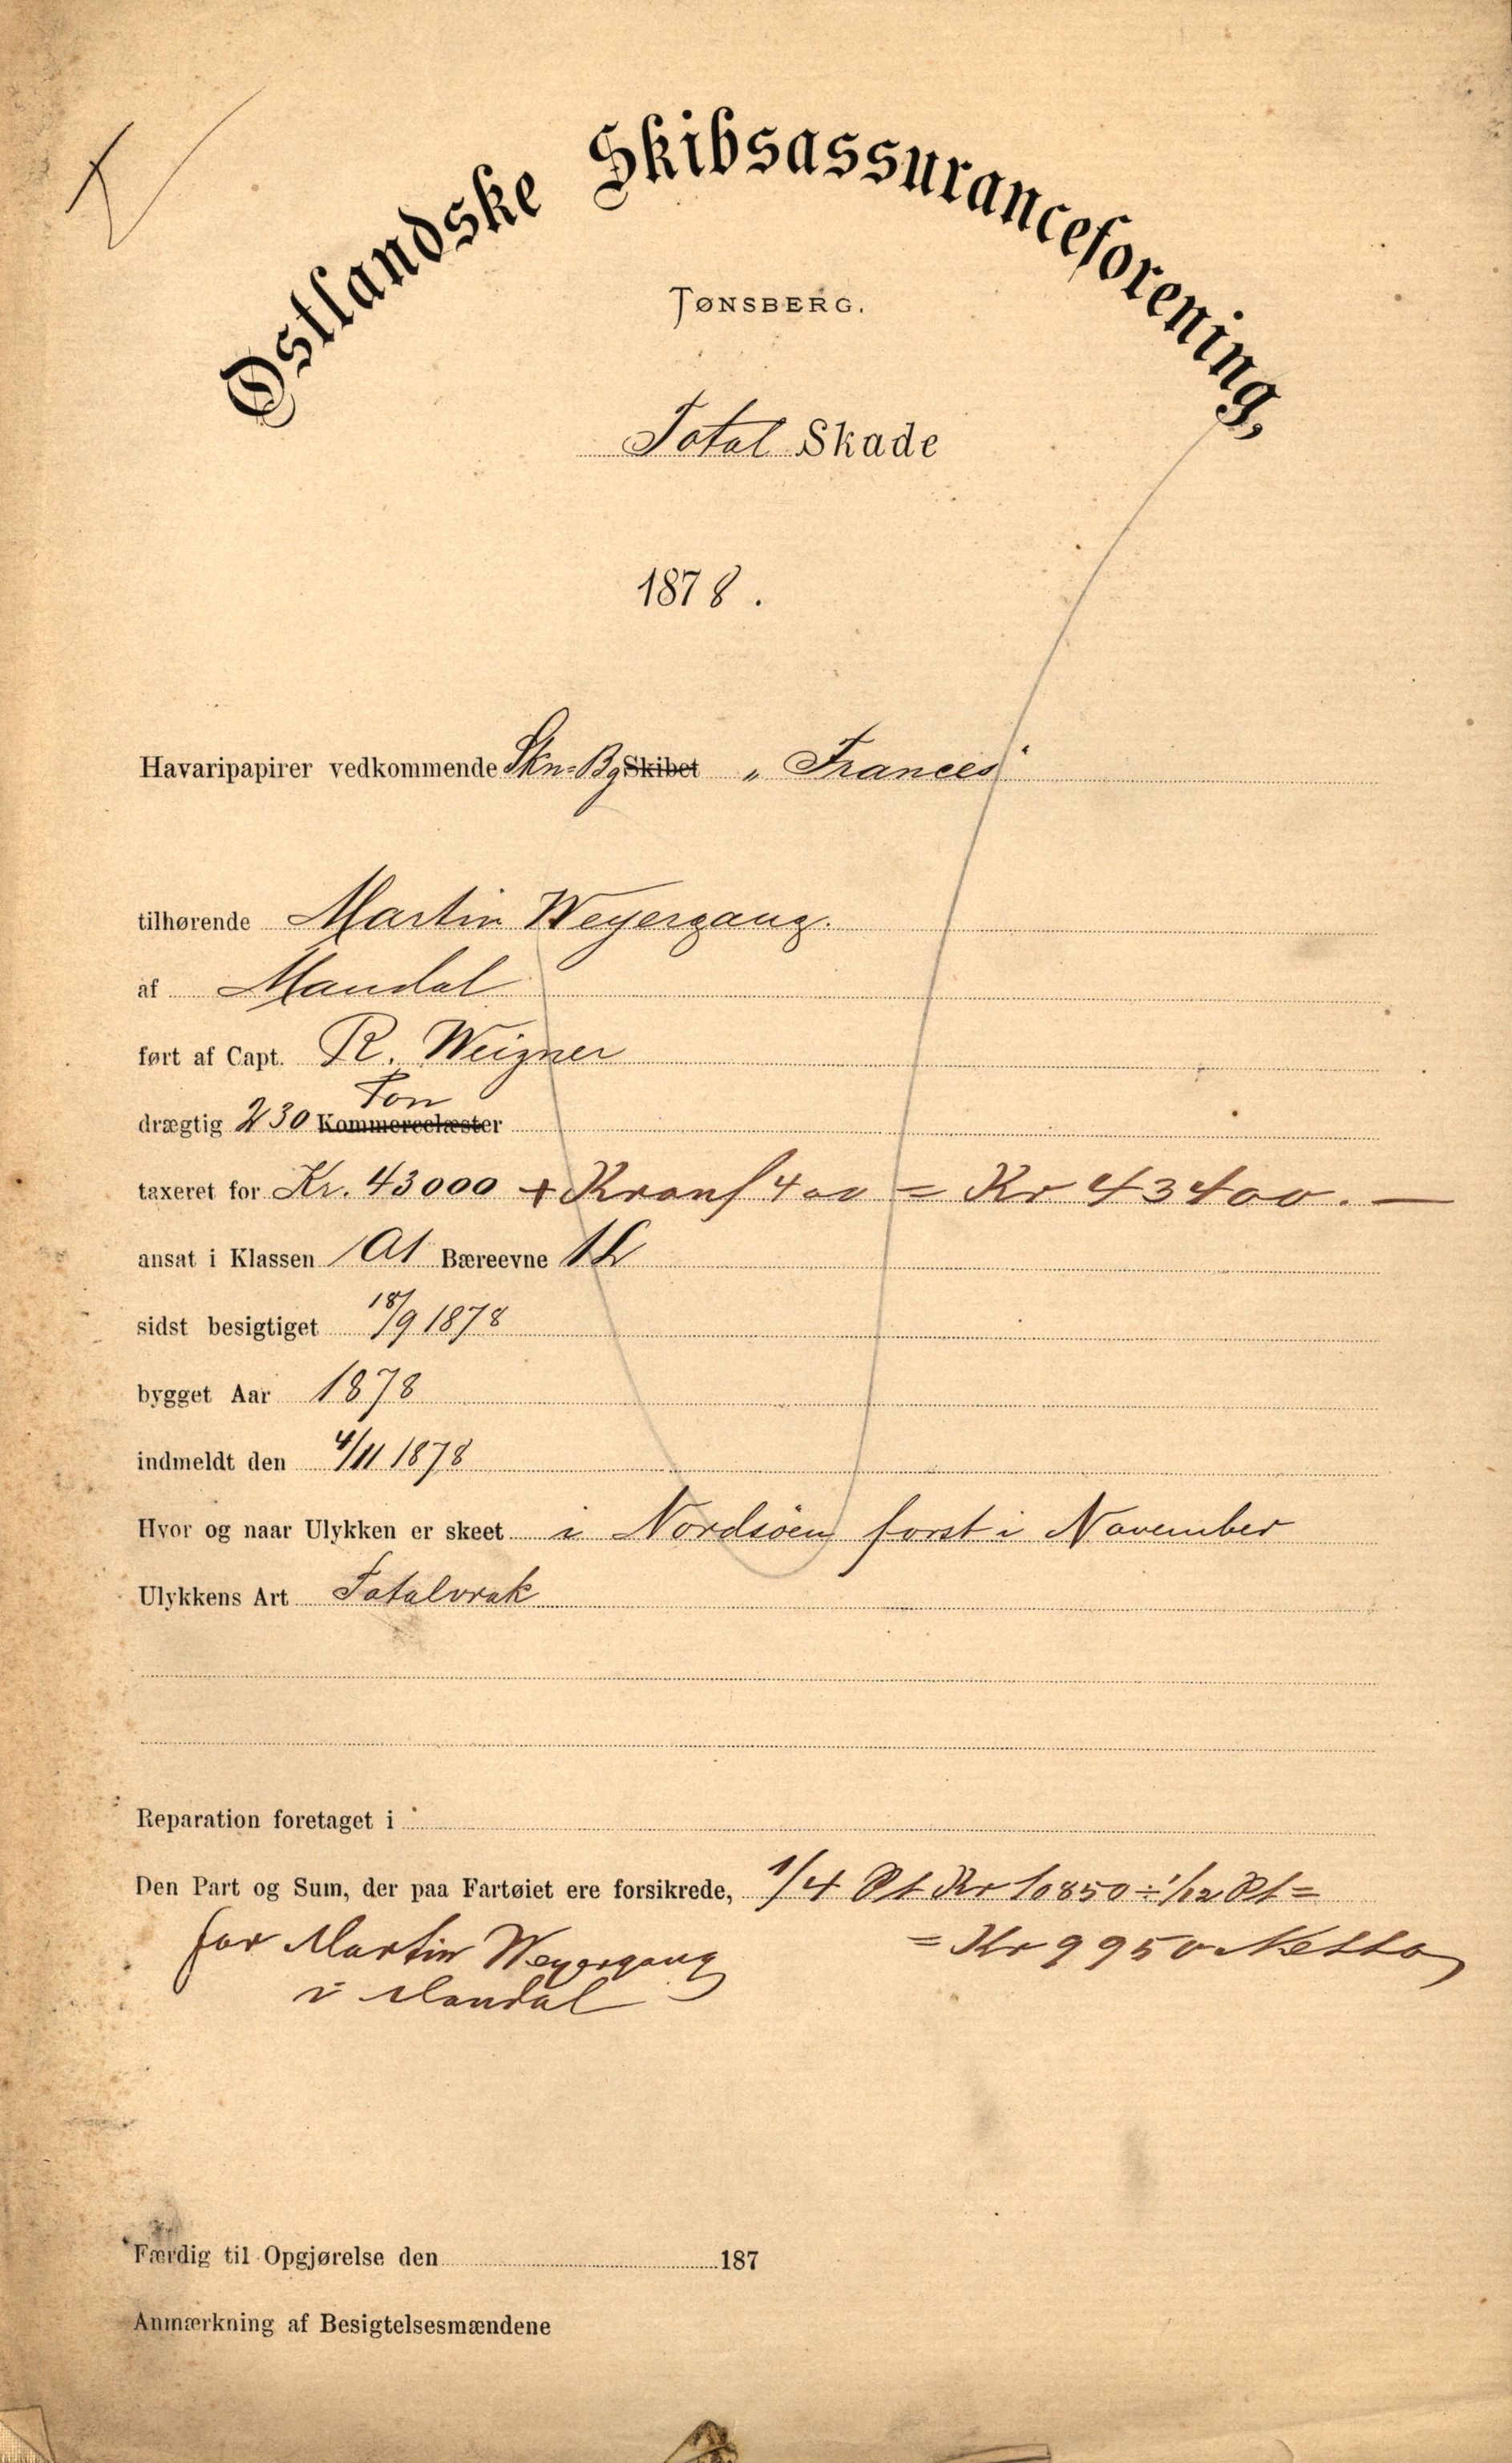 Østlandske Skibsassuranceforening,
TØNSBERG.
Total Skade
1878.
Havaripapirer vedkommende Skn-Bg Skibet „Frances"
tilhørende Martin Weyergang.
af Mandal
ført af Capt. R. Weigner
Ton
drægtig 230 Kommercelæster
taxeret for Kr. 43000 + 400 = Kr 43400.—
ansat i Klassen A1 Bæreevne
sidst besigtiget 18/9 1878
bygget Aar 1878
indmeldt den 4/11 1878
Hvor og naar Ulykken er skeet i Nordsöen forst i November
Ulykkens Art Totalvrak
Reparation foretaget i
Den Part og Sum, der paa Fartøiet ere forsikrede, 1/4 Pt Kr 10850 ÷ 1/12 Pt =
for Martin Weyergang = Kr 9950 Netto
i Mandal
Færdig til Opgjørelse den 187
Anmærkning af Besigtelsesmændene